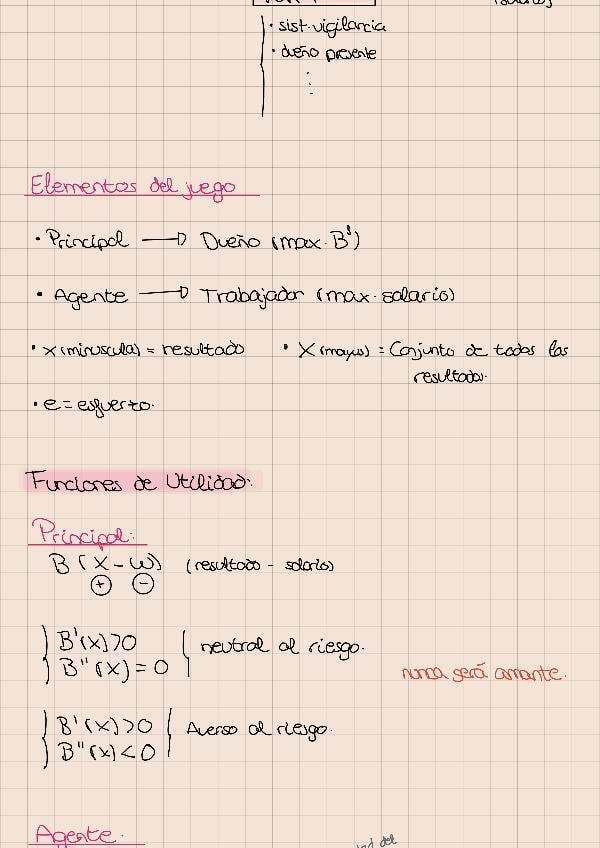 · sist. vigilancia
· dueño presente
⋮
Elementos del juego
· Principal → Dueño (max. B')
· Agente → Trabajador (max. salario)
· x (minuscula) = resultado · X (mayus) = Conjunto de todos los
resultados.
· e = esfuerzo.
Funciones de Utilidad:
Principal:
B (X - W) (resultado - salario)
+ -
B'(x) > 0
neutral al riesgo.
B''(x) = 0
nunca será amante.
B'(x) > 0
Averso al riesgo.
B''(x) < 0
Agente.
del